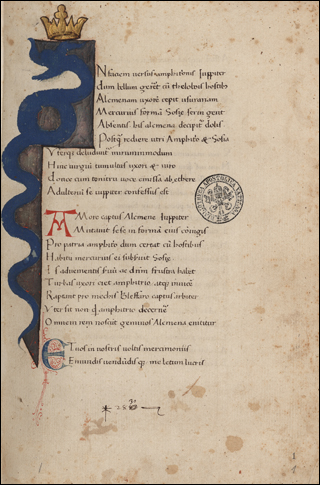 N faciem versus Amphitrionis Iuppiter
Dum bellum gereret cū thelobois hostib;
Alcmenam uxorē cepit usurariam
Mercurius formā Sosie servi gerit
Absentis his alcmena decipit dolis
Postq̄ rediere veri Amphitruo & Sosia
Vterq; deludunt in mirummodum
Hinc iurgiū tumultus uxori & viro
Donec cum tonitru voce emissa ab ethere
Adulterū se iuppiter confessus est
A More captus Alcmene Iuppiter
Mutavit sese in formā eius coniugis
Pro patria amphitruo dum certat cū hostibus
Habitu mercurius ei subservit Sosie
Is advenientis servū ac dnm̄ frustra habet
Turbas uxori ciet amphitruo, atq; invicē
Raptant pro mechis Blefaro captus arbiter
Vter sit non q̄t amphitruo decernē
Omnem rem noscunt geminos Alcmena enititur
Et vos in vostris voltis mercimoniis
Emundis vendundisq; me letum lucris